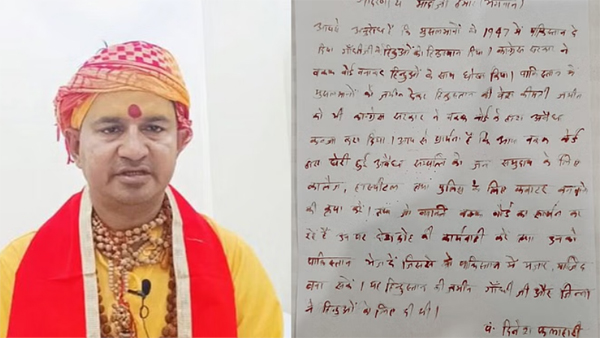 आदरणीय भाई जी हमारे (भगवान)
आपसे अनुरोध है कि मुसलमानों को 1947 में पाकिस्तान दे
दिया गाँधीजी ने हिन्दुओं को हिन्दुस्तान दिया। कांग्रेस सरकार ने
वक्फ बोर्ड बनाकर हिन्दुओं के साथ धोखा दिया। पाकिस्तान में
मुसलमानों को जमीन देकर हिन्दुस्तान की बेश कीमती जमीन
को भी कांग्रेस सरकार ने वक्फ बोर्ड के द्वारा अवैध
कब्जा करा दिया। आप से प्रार्थना है कि आप वक्फ बोर्ड
द्वारा घेरी हुई अवैध सम्पत्ति को जन समुदाय के लिए
कालेज, हास्पीटल तथा पुलिस के लिए क्वाटर बनवाने
की कृपा करें। तथा जो व्यक्ति वक्फ बोर्ड का समर्थन कर
रहे हैं उन पर देशद्रोह की कार्यवाही करें तथा उनको
पाकिस्तान भेज दें जिससे वे पाकिस्तान में मजार, मस्जिद
बना सकें। यह हिन्दुस्तान की जमीन गाँधी जी और जिन्ना
ने हिन्दुओं के लिए दी थी।
पं दिनेश फलाहारी